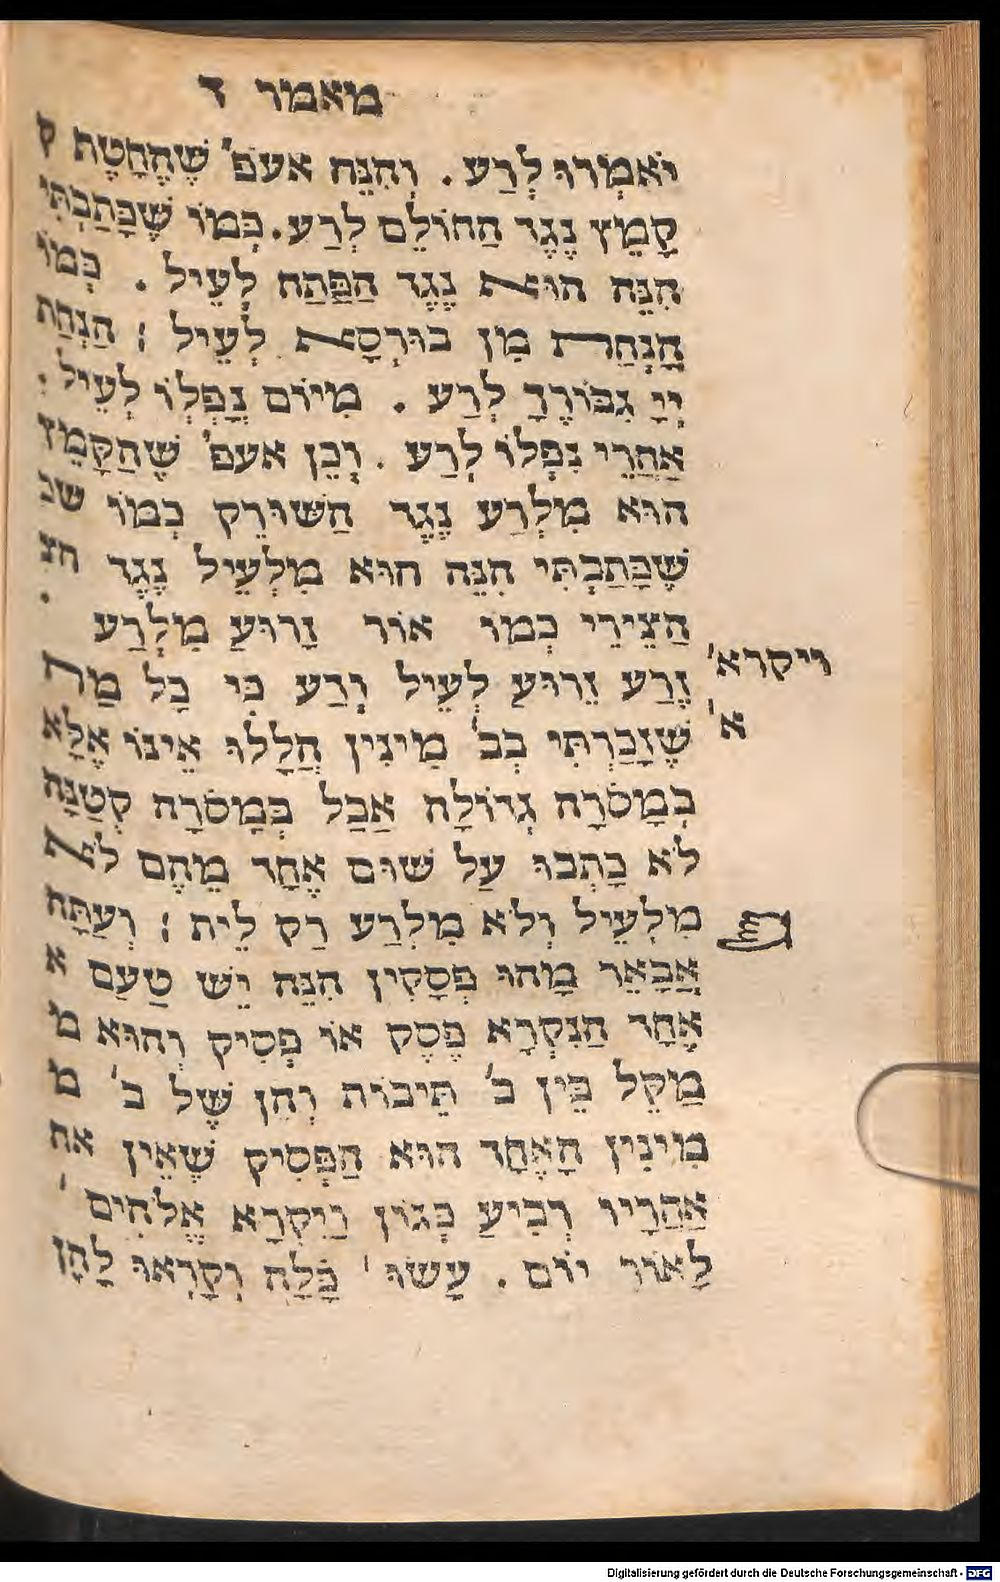 מאמר ד
יֹאמְרוּ לְרַע . וְהִנֵּה אעפ' שֶׁהֶחָטֶת ק
קָמֵץ נֶגֶד הַחוֹלֵם לְרַע . כְּמוֹ שֶׁכָּתַבְתִּי
הִנֵּה הוּא נֶגֶד הַפַּתַח לְעֵיל . כְּמוֹ
הָנְחַת מִן כּוּרְסָא לְעֵיל : הַנְחַת
יְיָ גִבּוֹרֶךָ לְרַע . מִיּוֹם נָפְלוּ לְעֵיל .
אַחֲרֵי נִפְלוֹ לְרַע . וְכֵן אעפ' שֶׁהַקָּמֵץ
הוּא מִלְרַע נֶגֶד הַשּׁוּרֵק כְּמוֹ שכ
שֶׁכָּתַבְתִּי הִנֵּה הוּא מִלְעֵיל נֶגֶד הצ
הַצֵּירֵי כְּמוֹ אוֹר זָרוּעַ מִלְרַע .
זֶרַע זֵרוּעַ לְעֵיל וְרַע כִּי כָל מַה
שֶׁזָּכַרְתִּי בְּב' מִינִין הַלָּלוּ אֵינוֹ אֶלָּא
בְּמָסֹרָה גְדוֹלָה אַבַל בְּמָסֹרָה קְטַנָּה
לֹא כָתְבוּ עַל שׁוּם אֶחָד מֵהֶם לֹא
מִלְעֵיל וְלֹא מִלְרַע רַק לֵית : וְעַתָּה
אֲבָאֵר מָהוּ פְּסָקִין הִנֵּה יֵשׁ טַעַם א
אֶחָד הַנִּקְרָא פֶּסֶק אוֹ פְסִיק וְהוּא מ
מַקֵּל בֵּין ב' תֵּיבוֹת וְהֵן שֶׁל ב' מ
מִינִין הָאֶחָד הוּא הַפְּסִיק שֶׁאֵין אח
אַחֲרָיו רְבִיעַ כְּגוֹן וַיִּקְרָא אֱלֹהִים '
לָאוֹר יוֹם . עָשׂוּ ' כָּלָה וְקָרְאוּ לָהֶן
ויקרא'
א'